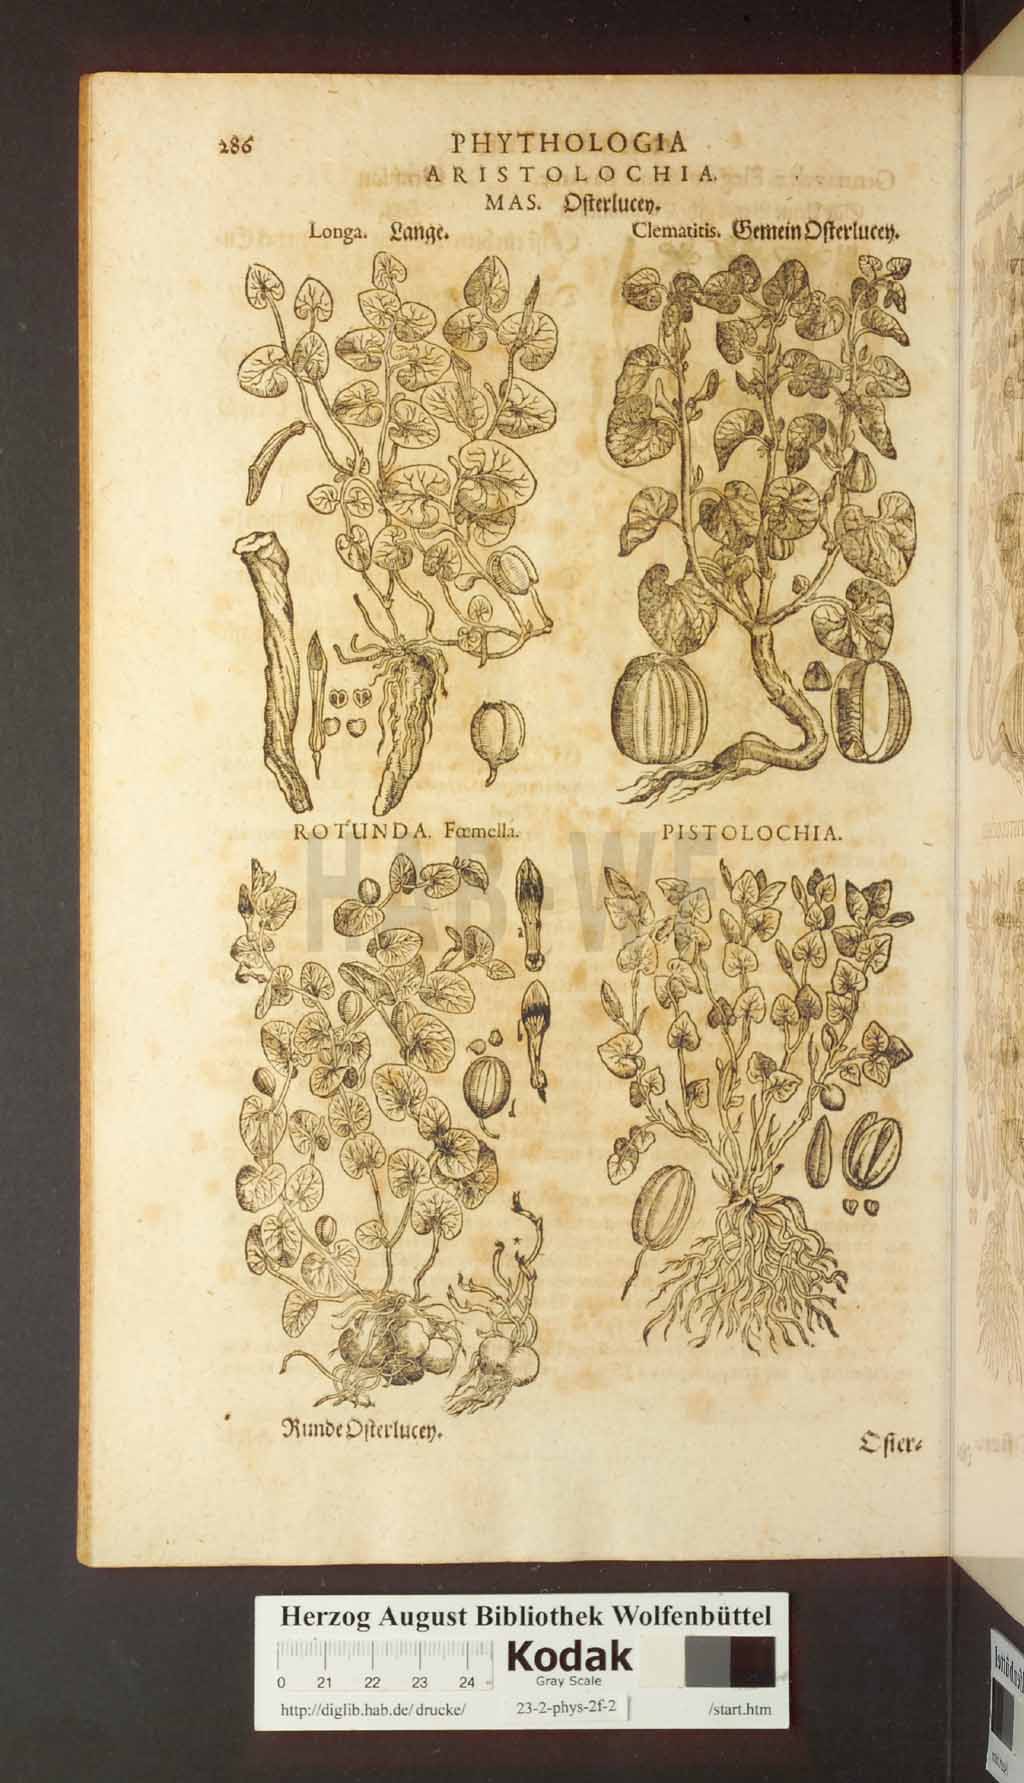 286 PHYTHOLOGIA
ARISTOLOCHIA.
MAS. Osterlucey.
Longa. Lange. Clematitis. Gemein Osterlucey.
ROTUNDA. Fœmella. PISTOLOCHIA.
HAB-WF
Runde Osterlucey.
Oster-
Herzog August Bibliothek Wolfenbüttel
0 21 22 23 24
Kodak
Gray Scale
http://diglib.hab.de/drucke/ 23-2-phys-2f-2 /start.htm